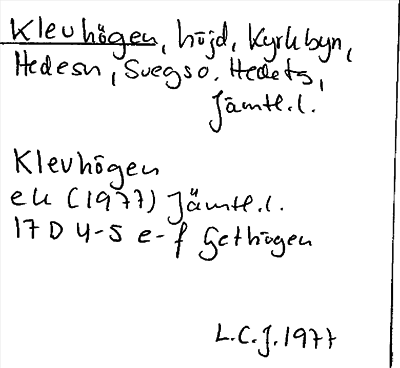 Klevhögen, höjd, Kyrkbyn,
Hedesn, Svegso. Hedets,
Jämtl.l.
Klevhögen
ek (1977) Jämtl.l.
17 D 4-5 e-f Gethögen
L.C.J. 1977